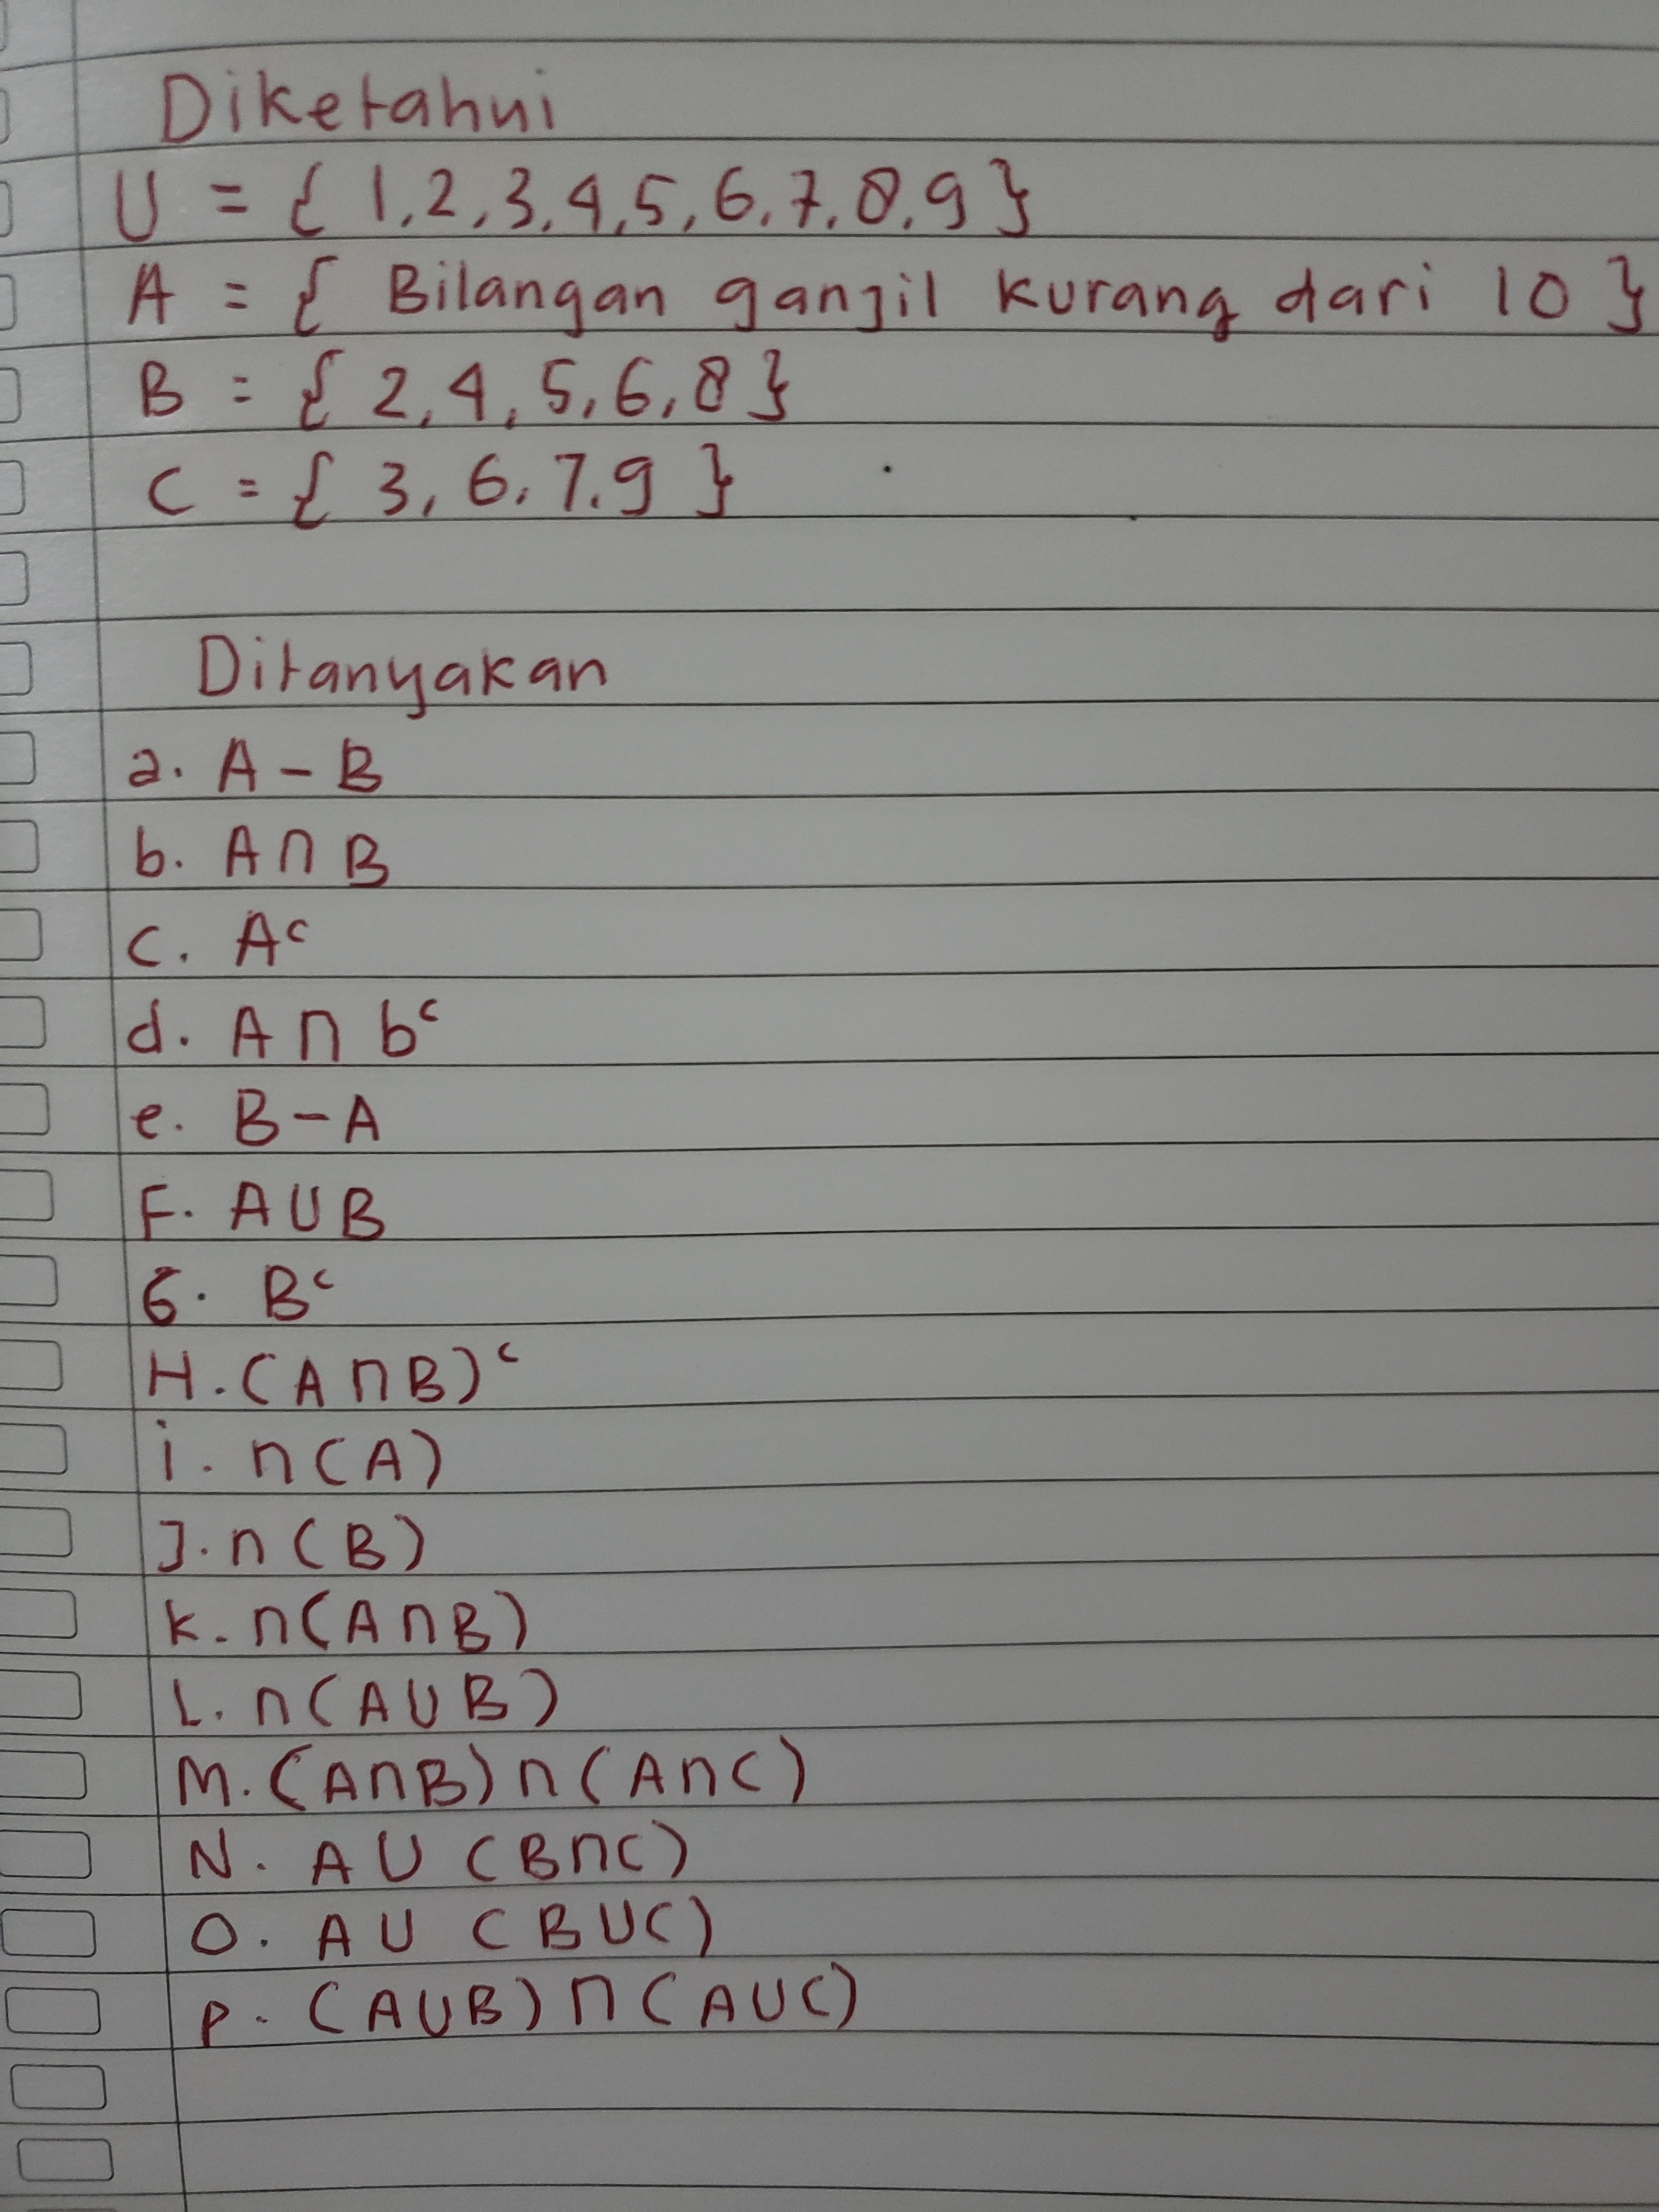 Diketahui
U = { 1,2,3,4,5,6,7,8,9 }
A = { Bilangan ganjil kurang dari 10 }
B = { 2,4,5,6,8 }
C = { 3,6,7,9 }
Ditanyakan
a. A - B
b. A ∩ B
C. Aᶜ
d. A ∩ bᶜ
e. B - A
F. A ∪ B
G. Bᶜ
H. (A ∩ B)ᶜ
i. n(A)
J. n(B)
K. n(A ∩ B)
L. n(A ∪ B)
M. (A ∩ B) ∩ (A ∩ C)
N. A ∪ (B ∩ C)
O. A ∪ (B ∪ C)
P. (A ∪ B) ∩ (A ∪ C)